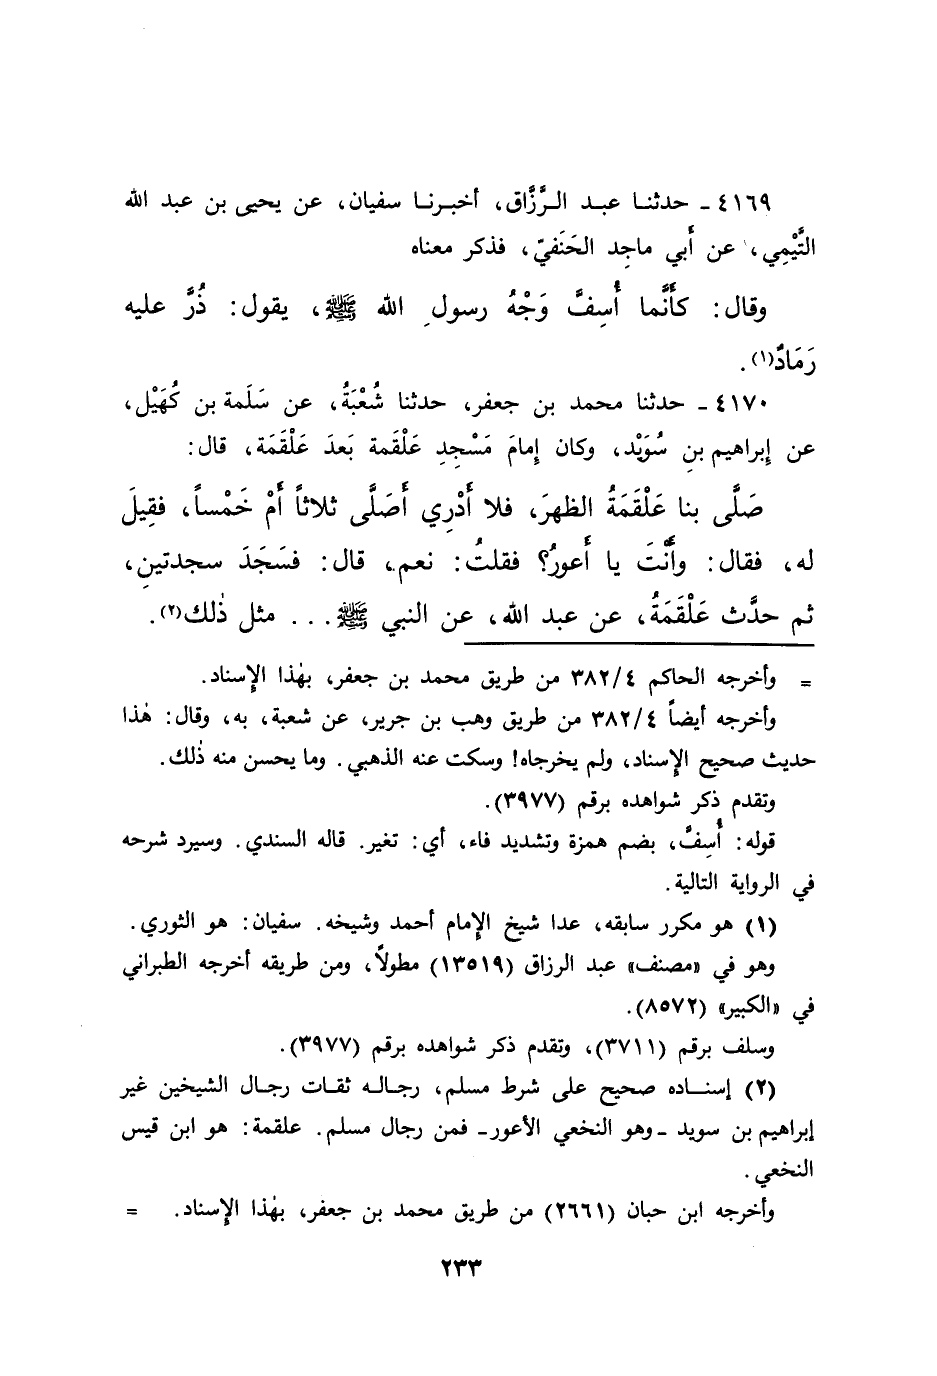 ٤١٦٩ ـ حدثنـا عبـد الـرَّزَّاق، أخبـرنـا سفيان، عن يحيى بن عبد الله
التَّيْمِي، عن أَبي ماجِد الحَنَفيّ، فذكر معناه
وقال: كأَنَّما أُسِفَّ وَجْهُ رسولِ الله ﷺ، يقول: ذُرَّ عليه
رَمَادٌ(١).
٤١٧٠ ـ حدثنا محمد بن جعفر، حدثنا شُعْبَةُ، عن سَلَمة بن كُهَيْل،
عن إِبراهيم بنِ سُوَيْد، وكان إِمامَ مَسْجِدِ عَلْقَمة بَعدَ عَلْقَمَة، قال:
صَلَّى بنا عَلْقَمَةُ الظهرَ، فلا أَدْرِي أَصَلَّى ثلاثاً أَمْ خَمْساً، فقِيلَ
له، فقال: وأَنْتَ يا أَعورُ؟ فقلتُ: نعم، قال: فسَجَدَ سجدتينِ،
ثم حدَّث عَلْقَمَةُ، عن عبد الله، عن النبي ﷺ... مثل ذٰلك(٢).
= وأخرجه الحاكم ٣٨٢/٤ من طريق محمد بن جعفر، بهٰذا الإِسناد.
وأخرجه أيضاً ٣٨٢/٤ من طريق وهب بن جرير، عن شعبة، به، وقال: هٰذا
حديث صحيح الإِسناد، ولم يخرجاه! وسكت عنه الذهبي. وما يحسن منه ذٰلك.
وتقدم ذكر شواهده برقم (٣٩٧٧).
قوله: أُسِفَّ، بضم همزة وتشديد فاء، أي: تغير. قاله السندي. وسيرد شرحه
في الرواية التالية.
(١) هو مكرر سابقه، عدا شيخ الإِمام أحمد وشيخه. سفيان: هو الثوري.
وهو في «مصنف» عبد الرزاق (١٣٥١٩) مطولاً، ومن طريقه أخرجه الطبراني
في «الكبير» (٨٥٧٢).
وسلف برقم (٣٧١١)، وتقدم ذكر شواهده برقم (٣٩٧٧).
(٢) إسنـاده صحيح على شرط مسلم، رجـالـه ثقـات رجـال الشيخين غير
إبراهيم بن سويد ـ وهو النخعي الأعور ـ فمن رجال مسلم. علقمة: هو ابن قيس
النخعي.
وأخرجه ابن حبان (٢٦٦١) من طريق محمد بن جعفر، بهٰذا الإِسناد. =
٢٣٣